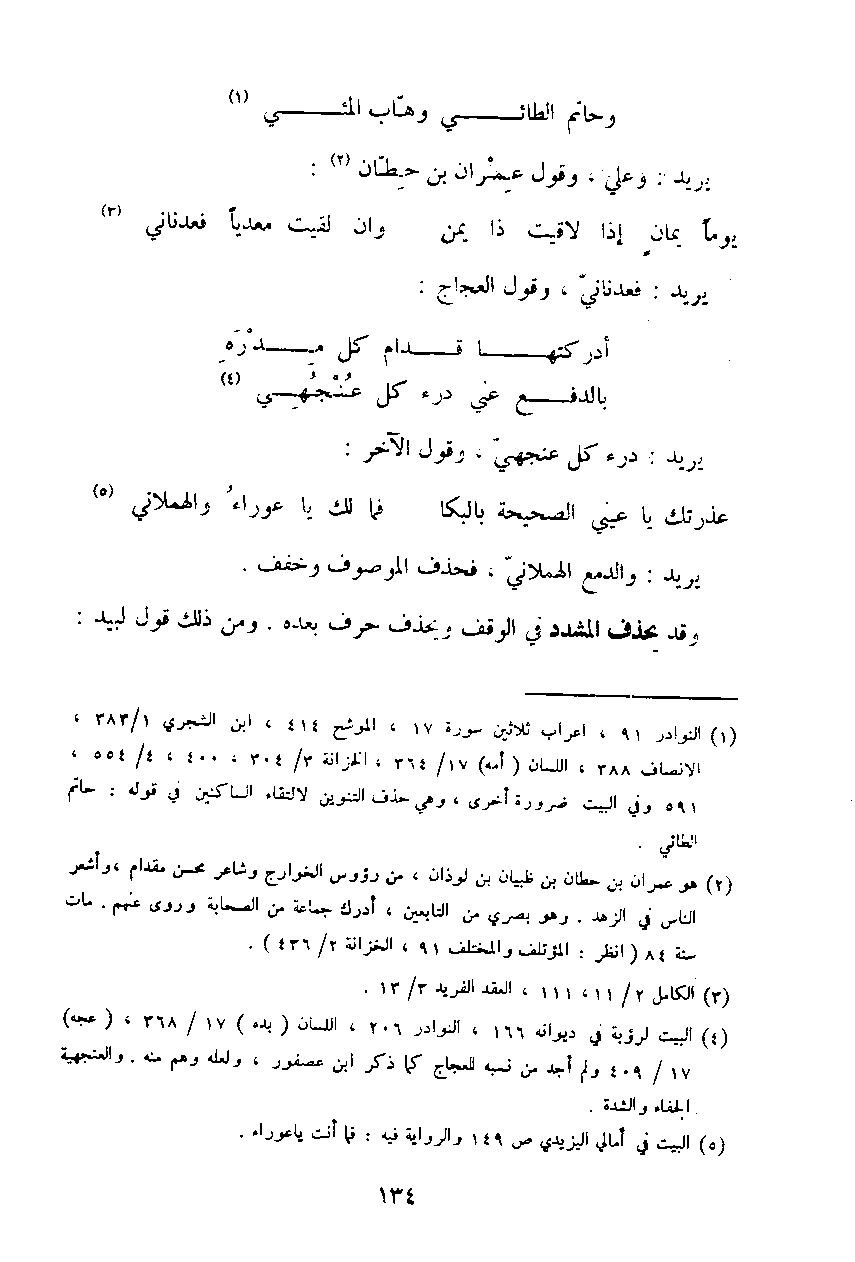 وحاتم الطائـــــي وهّاب المئـــــي (١)
يريد : وعليّ ، وقول عِمْران بن حِطّان (٢) :
يوماً يمانٍ إذا لاقيت ذا يمن وان لقيت معدياً فعدناني (٣)
يريد : فعدنانيّ ، وقول العجاج :
أدركتهـــا قـــدام كل مِـــدْرَهِ
بالدفـــع عني درء كل عُنْجُهِـي (٤)
يريد : درء كل عنجهيّ ، وقول الآخر :
عذرتك يا عيني الصحيحة بالبكا فما لك يا عوراءُ والهملاني (٥)
يريد : والدمع الهملانيّ ، فحذف الموصوف وخفف .
وقد يحذف المشدد في الوقف ويحذف حرف بعده . ومن ذلك قول لبيد :
(١) النوادر ٩١ ، اعراب ثلاثين سورة ١٧ ، الموشح ٤١٤ ، ابن الشجري ٣٨٣/١ ،
الانصاف ٣٨٨ ، اللسان ( أمه) ١٧/ ٣٦٤ ، الخزانة ٣/ ٣٠٤ ، ٤٠٠ ، ٤/ ٥٥٤ ،
٥٩١ وفي البيت ضرورة أخرى ، وهي حذف التنوين لالتقاء الساكنين في قوله : حاتم
الطائي .
(٢) هو عمران بن حطان بن ظبيان بن لوذان ، من رؤوس الخوارج وشاعر محسن مقدام ،وأشعر
الناس في الزهد . وهو بصري من التابعين ، أدرك جماعة من الصحابة وروى عنهم . مات
سنة ٨٤ ( انظر : المؤتلف والمختلف ٩١ ، الخزانة ٢/ ٤٣٦ ) .
(٣) الكامل ٢/ ١١، ١١١ ، العقد الفريد ٣/ ١٣ .
(٤) البيت لرؤبة في ديوانه ١٦٦ ، النوادر ٢٠٦ ، اللسان ( بده ) ١٧ / ٣٦٨ ، ( عجه)
١٧ / ٤٠٩ ولم أجد من نسبه للعجاج كما ذكر ابن عصفور ، ولعله وهم منه . والعنجهية
الجفاء والشدة .
(٥) البيت في أمالي اليزيدي ص ١٤٩ والرواية فيه : فما أنت ياعوراء .
١٣٤